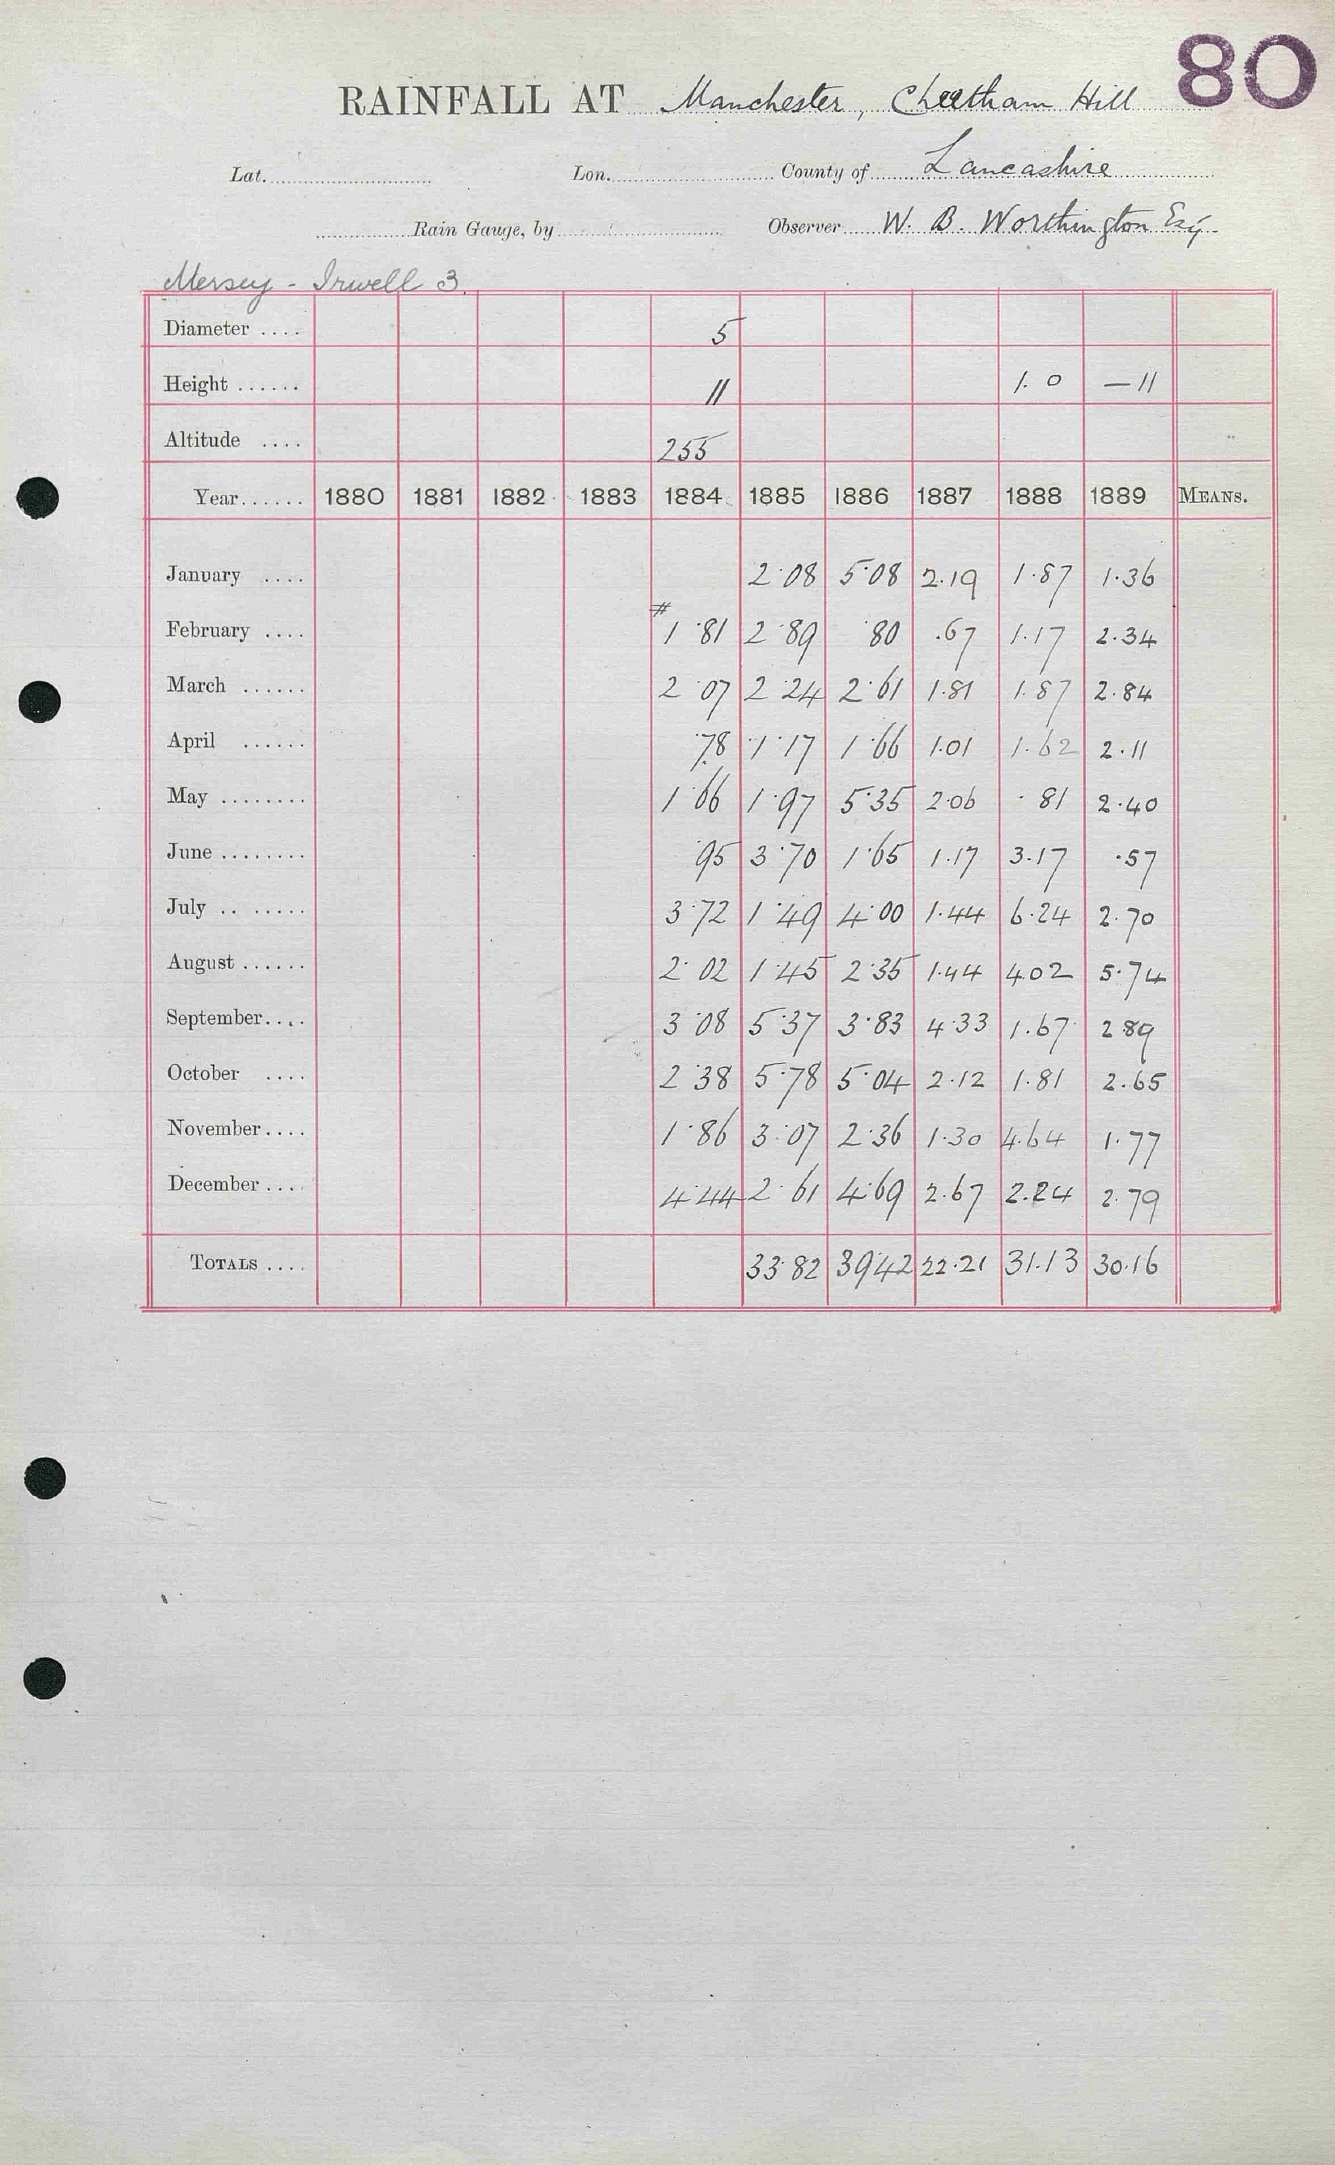 80
RAINFALL AT Manchester, Cheetham Hill
Lat. Lon. County of Lancashire
Rain Gauge, by Observer W. B. Worthington Esq.
Mersey - Irwell 3.
Diameter .... 5
Height ...... 11 1. 0 — 11
Altitude .... 255
Year...... 1880 1881 1882 1883 1884 1885 1886 1887 1888 1889 MEANS.
January .... 2.08 5.08 2.19 1.87 1.36
February .... # 1.81 2.89 .80 .67 1.17 2.34
March ...... 2.07 2.24 2.61 1.81 1.87 2.84
April ...... .78 1.17 1.66 1.01 1.62 2.11
May ........ 1.66 1.97 5.35 2.06 .81 2.40
June ........ .95 3.70 1.65 1.17 3.17 .57
July .. ..... 3.72 1.49 4.00 1.44 6.24 2.70
August ...... 2.02 1.45 2.35 1.44 4.02 5.74
September.... 3.08 5.37 3.83 4.33 1.67 2.89
October .... 2.38 5.78 5.04 2.12 1.81 2.65
November.... 1.86 3.07 2.36 1.30 4.64 1.77
December .... 4.44 2.61 4.69 2.67 2.24 2.79
TOTALS .... 33.82 39.42 22.21 31.13 30.16